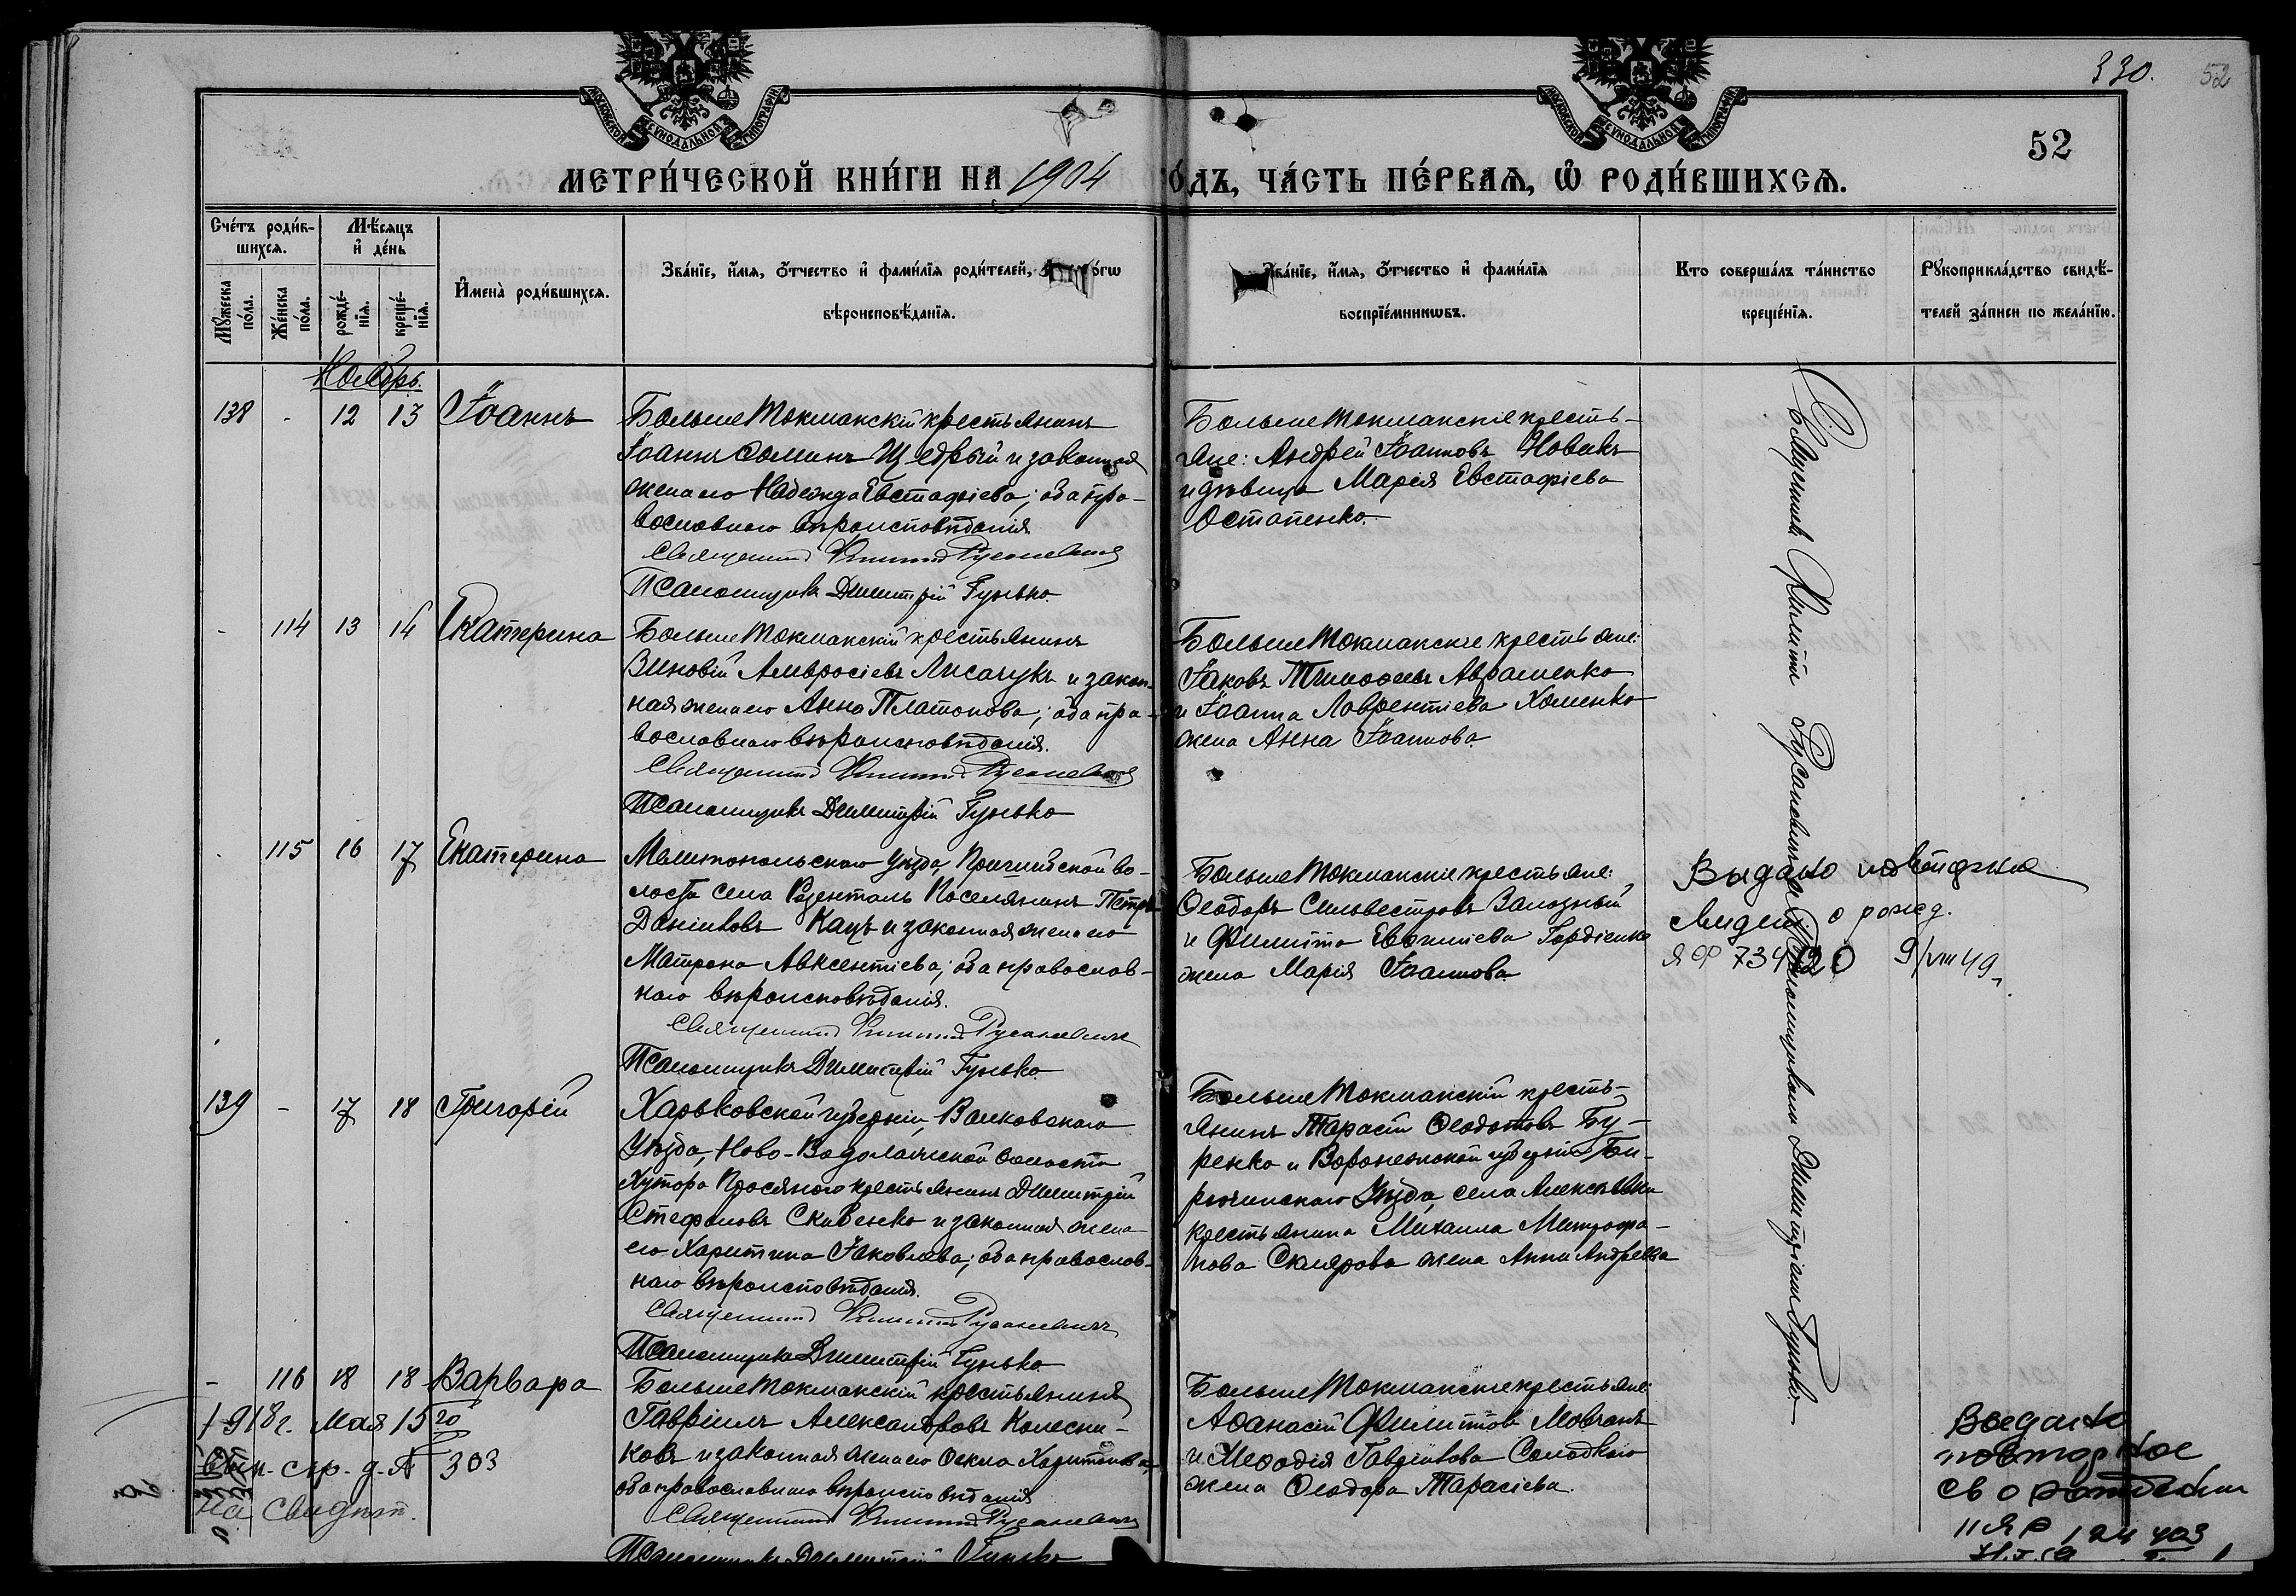 330. 52
52
МОСКОВСКОЙ СѴНОДАЛЬНОЙ ТИПОГРАФІИ
МОСКОВСКОЙ СѴНОДАЛЬНОЙ ТИПОГРАФІИ
МЕТРИ́ЧЕСКОЙ КНИ́ГИ НА 1904 го́дъ, ЧА́СТЬ ПЕ́РВАЯ, Ѡ҆ РОДИ́ВШИХСЯ.
Сче́тъ роди́в-
шихся.
Мѣ́сяцъ
и҆ де́нь
Мꙋ́жеска
по́ла.
Же́нска
по́ла.
рожде́-
нїя.
креще́-
нїя.
И҆мена̀ роди́вшихся.
Зва́нїе, и҆́мя, ѻ҆́тчество и҆ фами́лїя роди́телей,
вѣроисповѣ́данїя.
Зва́нїе, и҆́мя, ѻ҆́тчество и҆ фами́лїя
воспрїе́мникѡвъ.
Кто соверша́лъ та́инство
креще́нїя.
Рꙋкоприкла́дство свидѣ́-
телей за́писи по жела́нїю.
Ноябрь.
138 - 12 13 Іоаннъ
БольшеТокмакскій крестьянинъ
Іоаннъ Ѳоминъ Щедрый и законная
жена его Надежда Евстафіева; оба пра-
вославнаго вѣроисповѣданія
Священникъ Филиппъ Русаневичъ
Псаломщикъ Димитрій Гунько.
БольшеТокмакскіе кресть-
яне: Андрей Іоанновъ Новикъ
и дѣвица Марія Евстафіева
Остапенко.
- 114 13 14 Екатерина
БольшеТокмакскій крестьянинъ
Зиновій Амвросіевъ Лисачукъ и закон-
ная жена его Анна Платонова; оба пра-
вославнаго вѣроисповѣданія.
Священникъ Филиппъ Русаневичъ
Псаломщикъ Димитрій Гунько
БольшеТокмакскіе крестьяне:
Іаковъ Тимоѳеевъ Авраменко
и Іоанна Лаврентіева Хоменко
жена Анна Іоаннова.
115 16 17 Екатерина
Мелитопольскаго уѣзда, Пришибской во-
лости села Розенталь Поселянинъ Петръ
Даніиловъ Кацъ и законная жена его
Матрона Авксентіева; оба православ-
наго вѣроисповѣданія.
Священникъ Филиппъ Русаневичъ
Псаломщикъ Димитрій Гунько.
БольшеТокмакскіе крестьяне:
Ѳеодоръ Сильвестровъ Зализный
и Филиппа Евѳиміева Гордіенко
жена Марія Іоаннова.
Выдано
о рожд.
ЯФ 73 9/VIII 49
139 - 17 18 Григорій
Харьковской губерніи, Валковскаго
Уѣзда, Ново-Водолажской волости
Хутора Просянаго крестьянинъ Димитрій
Стефановъ Скибенко и законная жена
его Харитина Іаковлева; оба православ-
наго вѣроисповѣданія.
Священникъ Филиппъ Русаневичъ
Псаломщикъ Димитрій Гунько
БольшеТокмакскій кресть-
янинъ Тарасій Ѳеодотовъ Бу-
ренко и Воронежской губерніи Би-
рюченскаго Уѣзда, села Алексѣевки
крестьянина Михаила Митрофа-
нова Склярова жена Анна Андреева
- 116 18 18 Варвара
БольшеТокмакскій крестьянинъ
Гавріилъ Александровъ Колесни-
ковъ и законная жена его Ѳекла Харитонова,
оба православнаго вѣроисповѣданія
Священникъ Филиппъ Русаневичъ
Псаломщикъ Димитрій Гунько
БольшеТокмакскіе крестьяне:
Аѳанасій Филипповъ Мовчанъ
и Меѳодія Гавріилова Солодкаго
жена Ѳеодора Тарасіева.
1918 г. Мая 15 20
303
Священникъ Филиппъ Русаневичъ съ Псаломщикомъ Димитріемъ Гунько.
Выдано
повторное
св о рождении